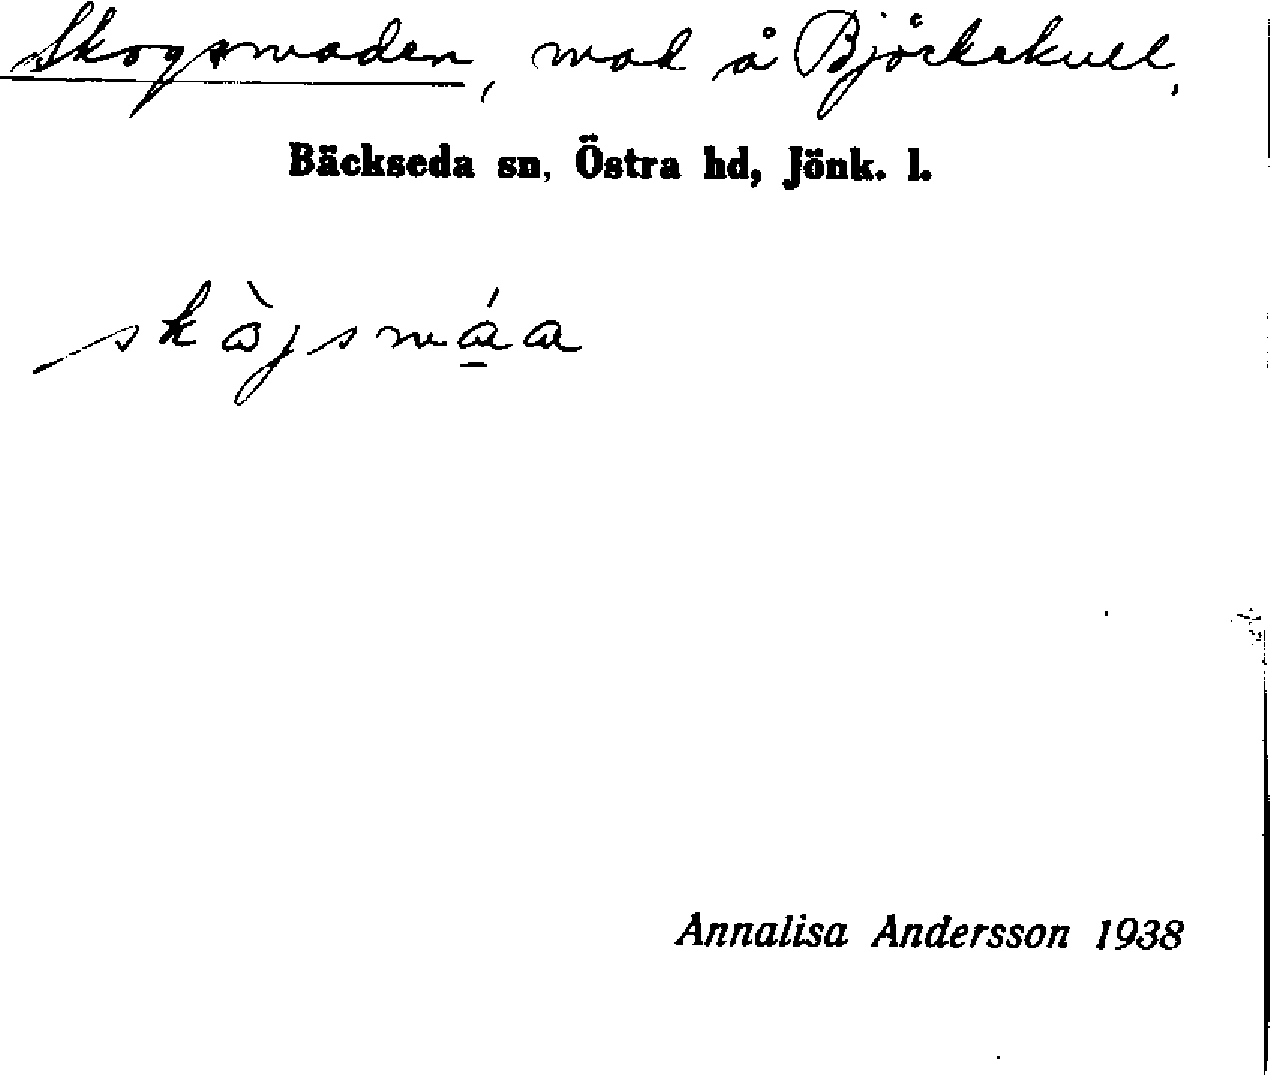 Skogsmaden, mad å Björkekull,
Bäckseda sn, Östra hd, Jönk. l.
skògsmáa
Annalisa Andersson 1938